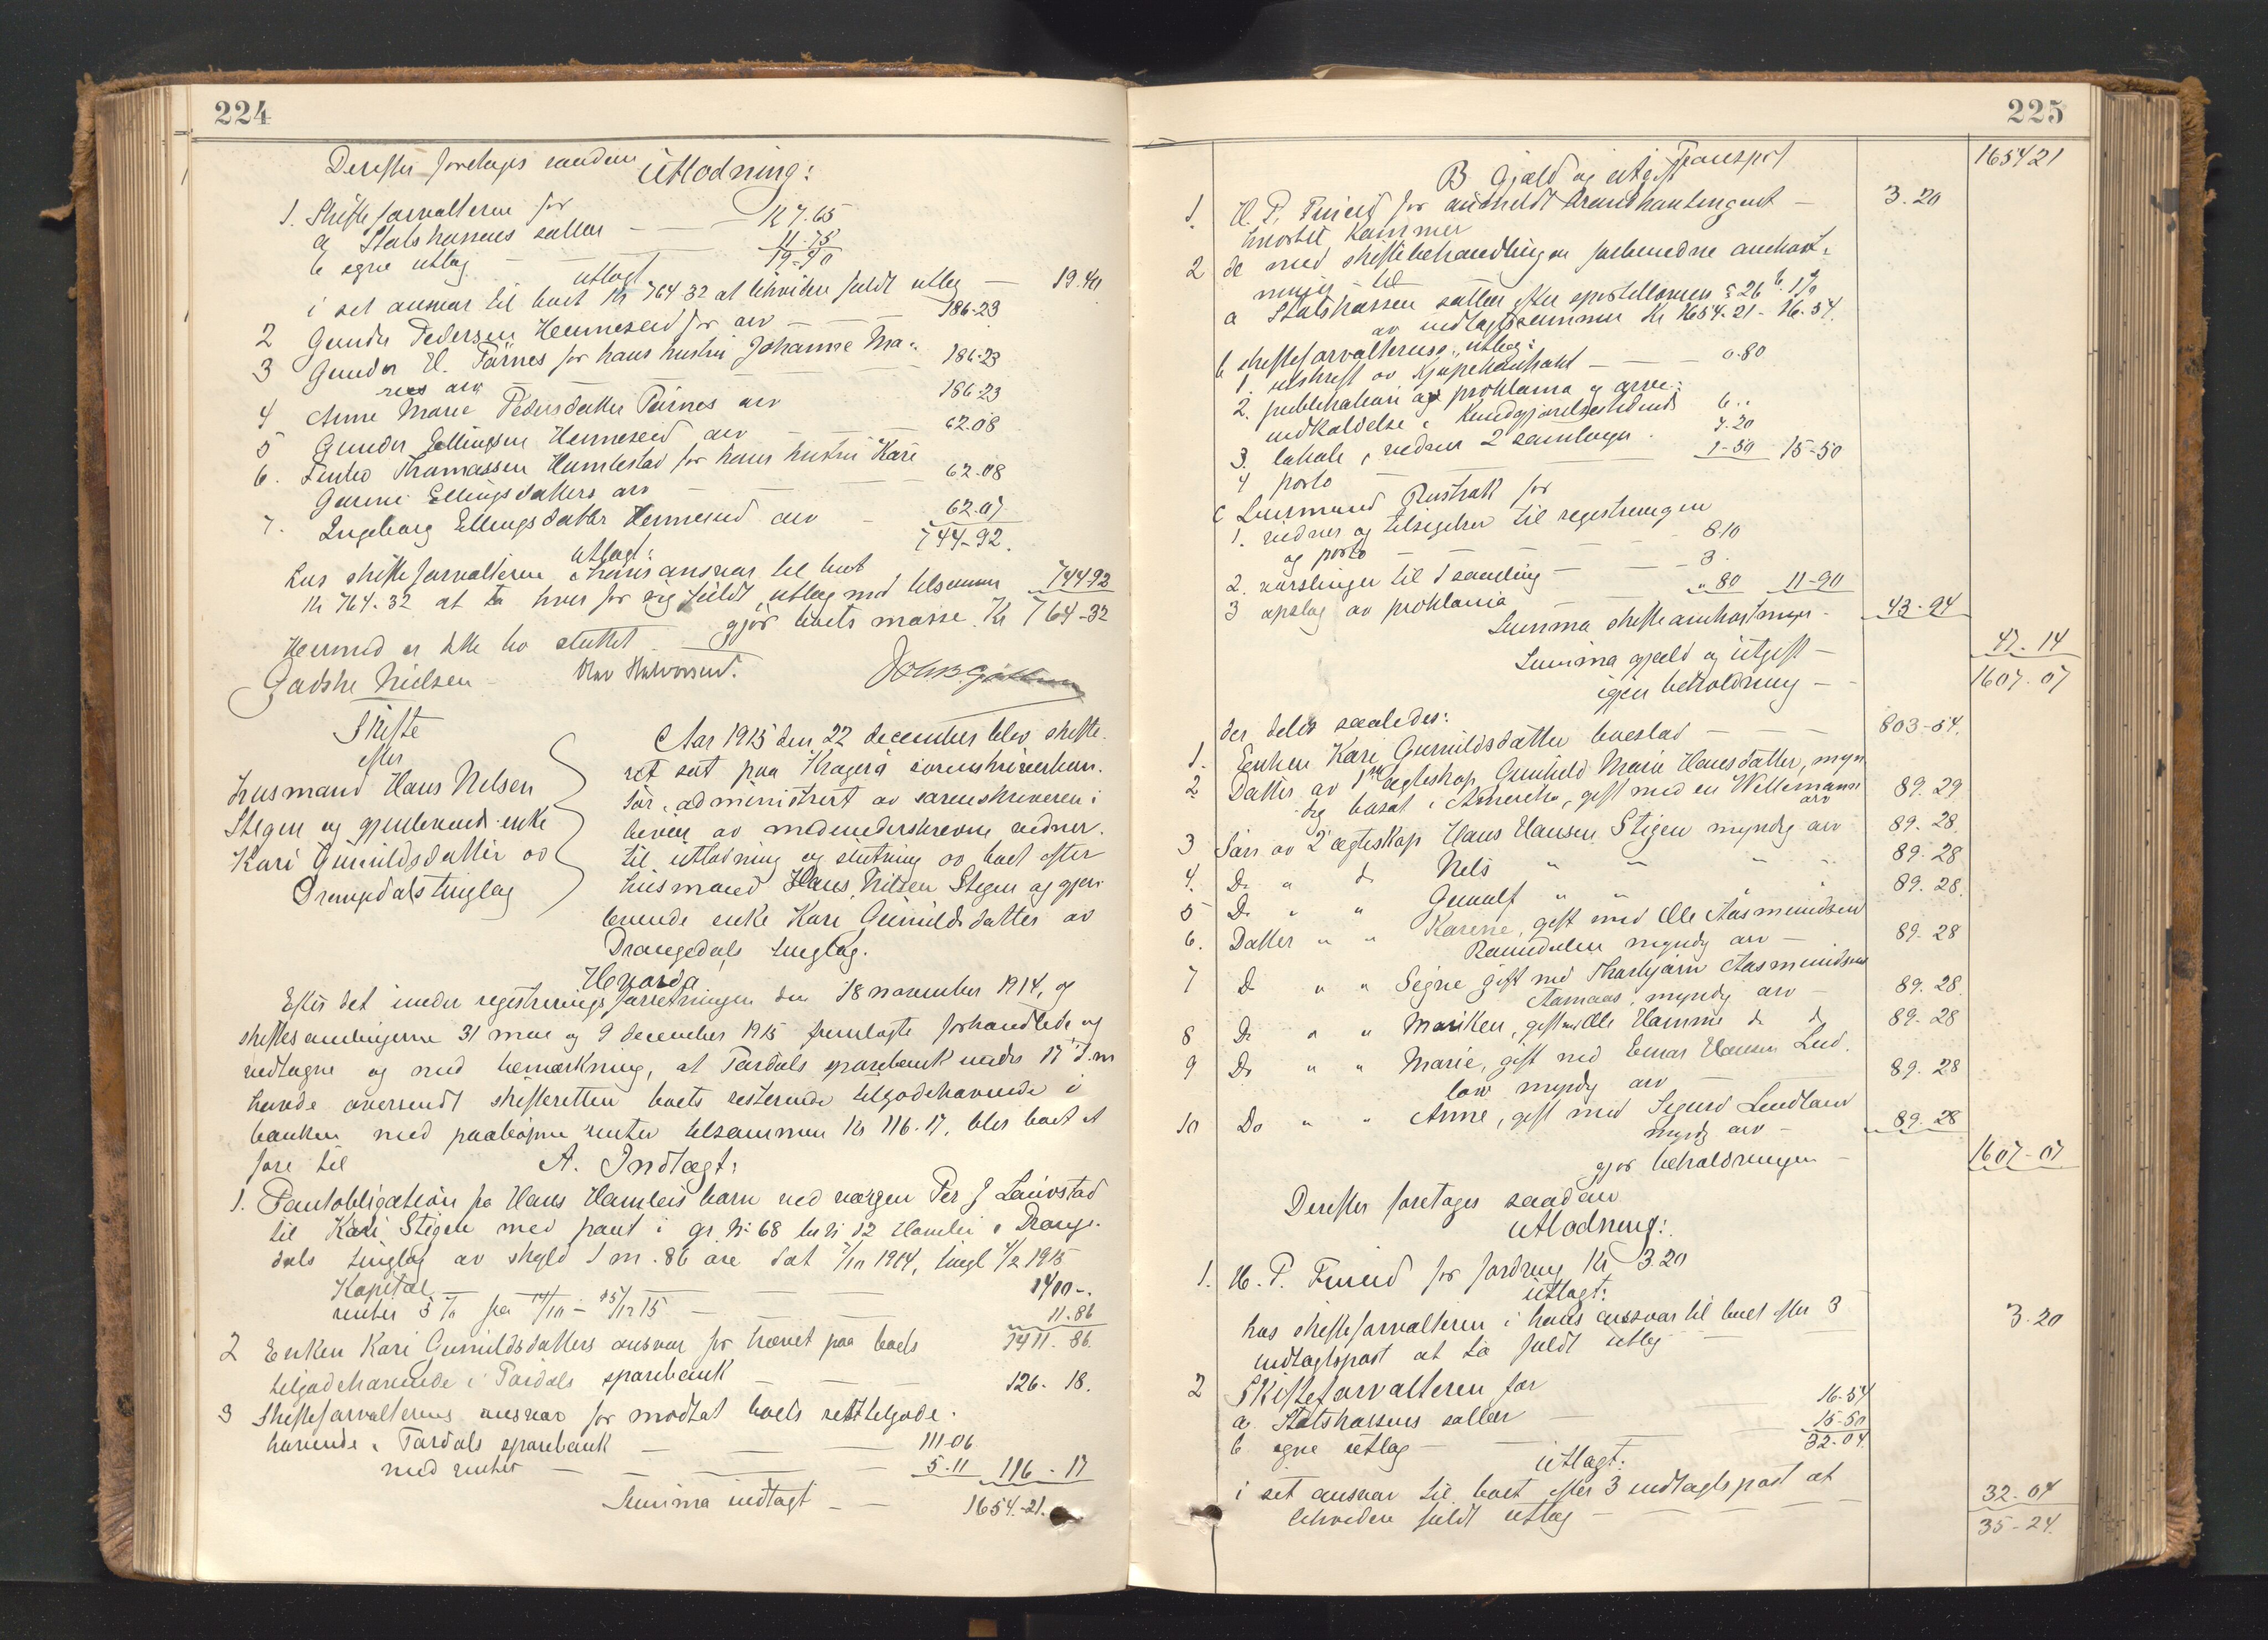 224
Derefter foretages saadan Utlodning:
1. Skifteforvalteren for
a Statskassens sallær — Kr 7.65
b egne utlæg — 11-75
19-40
utlagt
i set ansvar til boet Kr 764 32 at likvidere fuldt utlæg — 19.40
2 Gunder Pedersen Henneseid for arv — 186-23
3 Gunder H. Tørnes for hans hustru Johanne Ma-
ries arv — 186-23
4 Anne Marie Pedersdatter arv — 186-23
5 Gunder Ellingsen Henneseid arv — 62.08
6. Thomassen Humlestad for hans hustru Kari
Gurine Ellingsdatters arv — 62-08
7. Ingeborg Ellingsdatter Henneseid arv — 62.07
744-92.
utlagt:
hos skifteforvalteren i hans ansvar til boet
Kr 764-32 at ta hver for sig fuldt utlæg med tilsammen 744-92
gjør boets masse Kr 764-32
Hermed er dette bo sluttet.
Gadske Nielsen Olav Halvorsen.
Skifte
efter
husmand Hans Nilsen
Stigen og gjenlevende enke
Kari Gunuldsdatter av
Drangedals tinglag
Aar 1915 den 22 december blev skifte-
ret sat paa Kragerø sorenskriverkon-
tor, administrert av sorenskriveren i
overvær av medunderskrevne vidner
til utlodning og slutning av boet efter
husmand Hans Nilsen Stigen og gjen-
levende enke Kari Gunuldsdatter av
Drangedals tinglag.
Hvorda!
Efter det under registreringsforretningen den 18 november 1914, og
skiftesamlingerne 31 mai og 9 december 1915 fremlagte forhandlede og
vedtagne og med bemærkning, at Tørdals sparebank under 17 d.m
havde oversendt skifteretten boets resterende tilgodehavende i
banken med paaløpne renter tilsammen Kr 116.17, blev boet at
føre til A. Indtægt:
1. Pantobligation fra Hans Hamleis barn ved vergen Per J Lauvstad
til Kari Stigen med pant i gr. nr 68 br nr 12 Hamlei i Drange-
dals tinglag av skyld 1 m. 86 øre dat 7/10 1914, tingl 4/2 1915
Kapital — 1400-.
renter 5 % fra 14/10 – 15/12 15 — 11.86
1411.86
2 Enken Kari Gunuldsdatters ansvar for hævet paa boets
tilgodehavende i Tørdals sparebank — 126.18.
3 Skifteforvalterens ansvar for modtat boets resttilgode-
havende i Tørdals sparebank — 111-06
med renter — 5-11 116-17
Summa indtægt — 1654.-21.
225
Transport 1654 21
B Gjæld og utgift
1. H. P. for anmeldt brandkontingent — 3.20
2 de med skiftebehandlingen forbundne omkost-
ninger til
a Statskassen sallær efter sportelloven § 26 b. 1 %
av indtægtssummen Kr 1654-21 - 16-54.
b skifteforvalterens utlæg:
1. utskrift av kjøpekontrakt — 0.80
2. publikation av proklama og arve-
indkaldelse i Kundgjørelsestidende 6..
3. lokale, vidner 2 samlinger. 7.20
4 porto — 1-50 15-50
c Lensmand Rustvak for
1. vidner og tilsigelser til registreringen
og porto — 8.10
2. varslinger til 1 samling — 3.
3 opslag av proklama — „ 80 11-90
Summa skifteomkostninger — 43-94
Summa gjæld og utgift — 47.14
igjen beholdning — 1607-07
der deles saaledes:
1. Enken Kari Gunuldsdatter boeslod — 803-54.
2 Datter av 1ste ægteskap Gunhild Marie Hansdatter, myn
dig bosat i Amerika, gift med en Wellemann
arv 89.29
3 Søn av 2 ægteskap Hans Hansen Stigen myndig arv 89.28.
4. Do „ do Nels „ „ „ „ 89-28
5 Do „ „ Gunulf „ „ „ „ 89.28.
6. Datter „ „ Karine, gift med Ole Aasmundsen
myndig arv — 89-28
7 Do „ „ Signe gift med Thorbjørn Aasmundsen
myndig arv — 89.28.
8 Do „ „ Mariken, gift med Ole Hamme do do 89-28
9 Do „ „ Marie, gift med Einar Hansen
myndig arv — 89.28
10 Do „ „ Anne, gift med Sigurd Lindland
myndig arv — 89.28
gjør beholdningen — 1607-07
Derefter foretages saadan
Utlodning:
1. H. P. for fordring Kr 3.20
utlagt:
hos skifteforvalteren i hans ansvar til boet efter 3
indtægtspost at ta fuldt utlæg 3.20
2 Skifteforvalteren for
a. Statskassens sallær — 16-54
b egne utlæg — 15-50
32-04.
utlagt:
i set ansvar til boet efter 3 indtægtspost at
likvidere fuldt utlæg — 32-04
35-24.